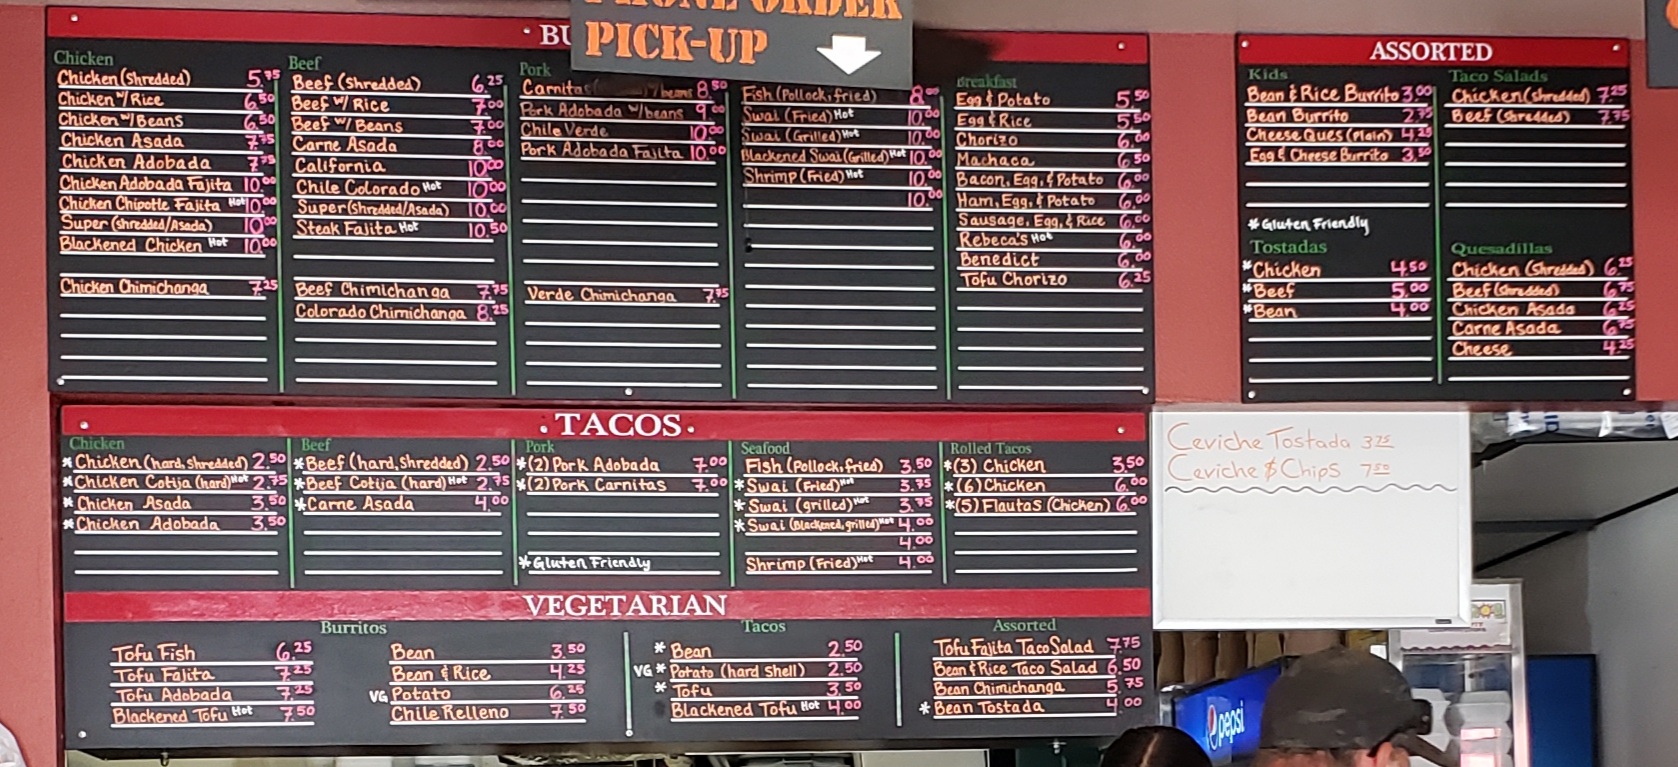 PHONE ORDER
PICK-UP
Chicken
Chicken (shredded) 5.75
Chicken w/ Rice 6.50
Chicken w/ Beans 6.50
Chicken Asada 7.75
Chicken Adobada 7.75
Chicken Adobada Fajita 10.00
Chicken Chipotle Fajita Hot 10.00
Super (shredded/Asada) 10.00
Blackened Chicken Hot 10.00
Chicken Chimichanga 7.25
Beef
Beef (shredded) 6.25
Beef w/ Rice 7.00
Beef w/ Beans 7.00
Carne Asada 8.00
California 10.00
Chile Colorado Hot 10.00
Super (shredded/Asada) 10.00
Steak Fajita Hot 10.50
Beef Chimichanga 7.75
Colorado Chimichanga 8.25
Pork
Carnitas w/beans 8.50
Pork Adobada w/beans 9.00
Chile Verde 10.00
Pork Adobada Fajita 10.00
Verde Chimichanga 7.75
Fish (Pollock, fried) 8.00
Swai (Fried) Hot 10.00
Swai (Grilled) Hot 10.00
Blackened Swai (Grilled) Hot 10.00
Shrimp (Fried) Hot 10.00
10.00
Breakfast
Egg & Potato 5.50
Egg & Rice 5.50
Chorizo 6.00
Machaca 6.50
Bacon, Egg, & Potato 6.00
Ham, Egg, & Potato 6.00
Sausage, Egg, & Rice 6.00
Rebeca's Hot 6.00
Benedict 6.00
Tofu Chorizo 6.25
ASSORTED
Kids
Bean & Rice Burrito 3.00
Bean Burrito 2.75
Cheese Ques (Plain) 4.25
Egg & Cheese Burrito 3.50
*Gluten Friendly
Taco Salads
Chicken (shredded) 7.25
Beef (shredded) 7.75
Tostadas
*Chicken 4.50
*Beef 5.00
*Bean 4.00
Quesadillas
Chicken (shredded) 6.25
Beef (shredded) 6.75
Chicken Asada 6.25
Carne Asada 6.75
Cheese 4.25
• TACOS •
Chicken
*Chicken (hard, shredded) 2.50
*Chicken Cotija (hard) Hot 2.75
*Chicken Asada 3.50
*Chicken Adobada 3.50
Beef
*Beef (hard, shredded) 2.50
*Beef Cotija (hard) Hot 2.75
*Carne Asada 4.00
Pork
*(2) Pork Adobada 7.00
*(2) Pork Carnitas 7.00
*Gluten Friendly
Seafood
Fish (Pollock, fried) 3.50
*Swai (Fried) Hot 3.75
*Swai (grilled) Hot 3.75
*Swai (Blackened, grilled) Hot 4.00
4.00
Shrimp (Fried) Hot 4.00
Rolled Tacos
*(3) Chicken 3.50
*(6) Chicken 6.00
*(5) Flautas (Chicken) 6.00
Ceviche Tostada 3.75
Ceviche & Chips 7.50
VEGETARIAN
Burritos
Tofu Fish 6.25
Tofu Fajita 7.25
Tofu Adobada 7.25
Blackened Tofu Hot 7.50
Bean 3.50
Bean & Rice 4.25
VG Potato 6.25
Chile Relleno 7.50
Tacos
* Bean 2.50
VG * Potato (hard shell) 2.50
* Tofu 3.50
Blackened Tofu Hot 4.00
Assorted
Tofu Fajita Taco Salad 7.75
Bean & Rice Taco Salad 6.50
Bean Chimichanga 5.75
* Bean Tostada 4.00
pepsi